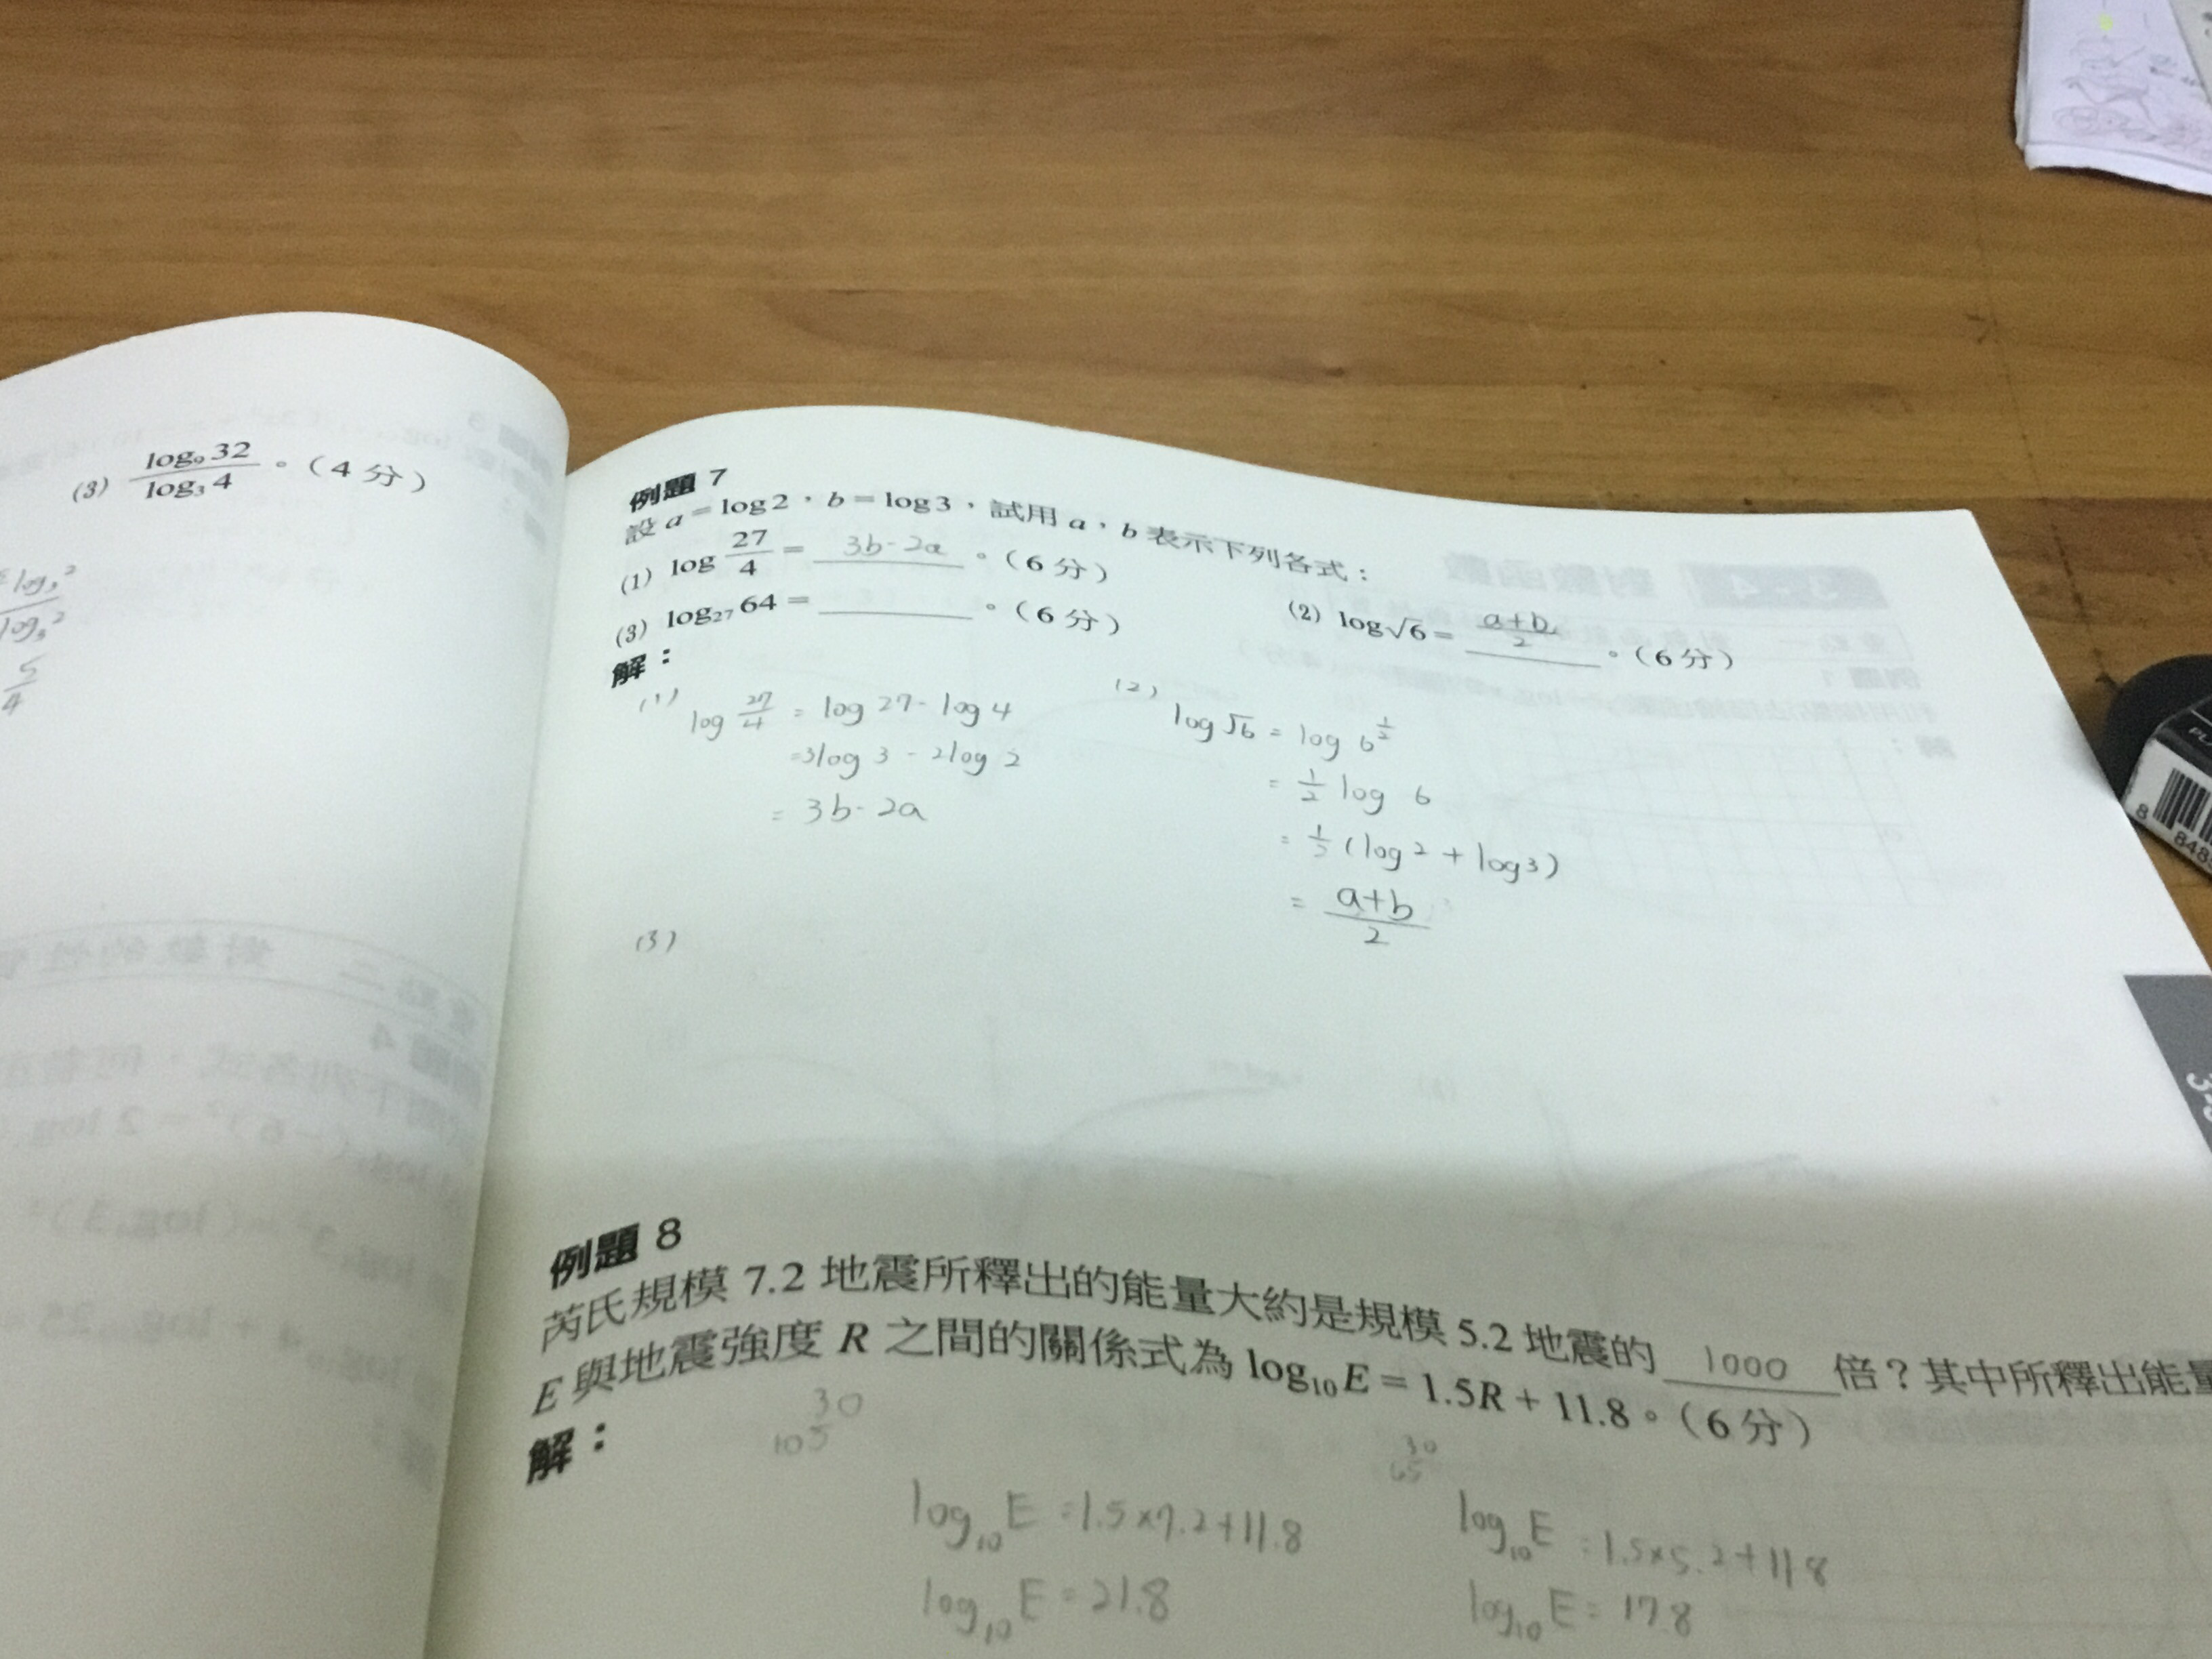 (3) log₉32 / log₃4 。(4 分)
5/4
例題 7
設 a = log2，b = log3，試用 a，b 表示下列各式：
(1) log 27/4 = 3b-2a 。(6 分)
(2) log√6 = a+b/2 。(6 分)
(3) log₂₇64 = ______ 。(6 分)
解：
(1) log 27/4 = log 27 - log 4
=3log 3 - 2log 2
= 3b-2a
(2) log√6 = log 6^½
= ½ log 6
= ½ (log2 + log3)
= a+b/2
(3)
例題 8
芮氏規模 7.2 地震所釋出的能量大約是規模 5.2 地震的 1000 倍？其中所釋出能量
E 與地震強度 R 之間的關係式為 log₁₀E = 1.5R + 11.8。(6 分)
解：
log₁₀E =1.5×7.2+11.8
log₁₀E = 21.8
log₁₀E = 1.5×5.2+11.8
log₁₀E = 17.8
8